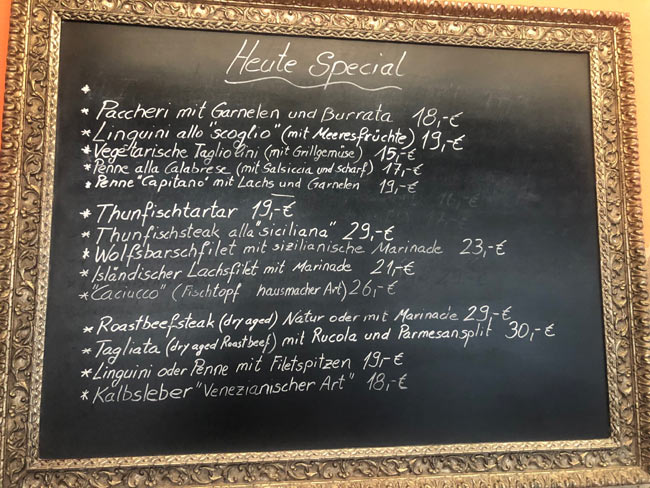 Heute Special
*
* Paccheri mit Garnelen und Burrata 18,-€
* Linguini allo "scoglio" (mit Meeresfrüchte) 19,-€
* Vegetarische Tagliolini (mit Grillgemüse) 15,-€
* Penne alla Calabrese (mit Salsiccia und scharf) 17,-€
* Penne "Capitano" mit Lachs und Garnelen 19,-€
* Thunfischtartar 19,-€
* Thunfischsteak alla "siciliana" 29,-€
* Wolfsbarschfilet mit sizilianische Marinade 23,-€
* Isländischer Lachsfilet mit Marinade 21,-€
* "Caciucco" (Fischtopf hausmacher Art) 26,-€
* Roastbeefsteak (dry aged) Natur oder mit Marinade 29,-€
* Tagliata (dry aged Roastbeef) mit Rucola und Parmesansplit 30,-€
* Linguini oder Penne mit Filetspitzen 19,-€
* Kalbsleber "Venezianischer Art" 18,-€